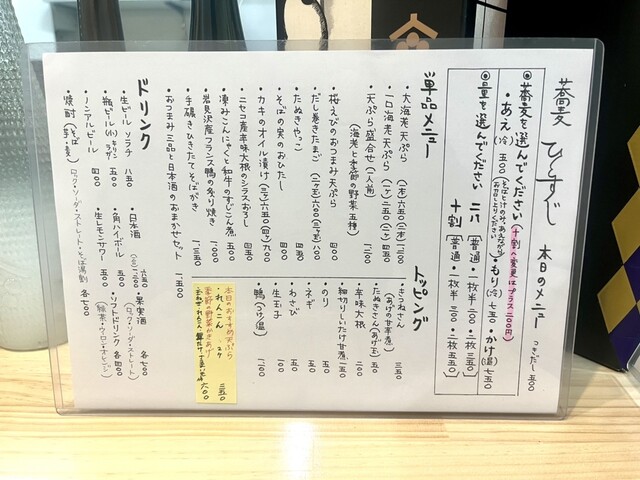 蕎麦 ひとすじ 本日のメニュー
つきだし 五〇〇
◎蕎麦を選んでください (十割へ変更はプラス二〇〇円)
・あえ(冷) 五〇〇 ・もり(冷) 七五〇 ・かけ(温) 七五〇
◎量を選んでください
二八 [普通・一枚半 二〇〇・二枚 三五〇]
十割 [普通・一枚半 三〇〇・二枚 五五〇]
単品メニュー
・大海老天ぷら (一本)六五〇 (二本)一二〇〇
・一口海老天ぷら (一ケ)二五〇 (二ケ)四五〇
・天ぷら盛合せ (一人前) 一、二〇〇
(海老と季節の野菜五種)
・桜えびのおつまみ天ぷら 四五〇
・だし巻きたまご (二ケ玉)六〇〇 (三ケ玉)八〇〇
・たぬきやっこ 四五〇
・そばの実のおひたし 四〇〇
・カキのオイル漬け (三ケ)六五〇 (四ケ)九〇〇
・ニセコ産辛味大根のシラスおろし 四〇〇
・凍みこんにゃくと和牛のすじこん煮 五〇〇
・岩見沢産フランス鴨の炙り焼き
・手碾きひきたてそばがき
・おつまみ三品と日本酒のおまかせセット 一、五〇〇
トッピング
・きつねさん 三五〇
(あげの甘辛煮)
・たぬきさん (あげ玉) 一五〇
・辛味大根 二〇〇
・細切りしいたけ甘煮 一五〇
・のり 一五〇
・ネギ 一五〇
・わさび 一五〇
・生玉子 一〇〇
・鴨
本日のおすすめ天ぷら
・れんこん 二ケ 三五〇
・季節の野菜かきあげ
六〇〇
ドリンク
・生ビール ソラチ 八五〇
・瓶ビール(小) キリン サッポロ 五〇〇
・ノンアルビール 四〇〇
・焼酎 (そば・芋・麦)
ロック・ソーダ・ストレート・そば湯割 各七〇〇
・日本酒
・角ハイボール 五五〇
・生レモンサワー 五五〇
・果実酒 各七〇〇
(ロック・ソーダ・ストレート)
・ソフトドリンク 各四〇〇